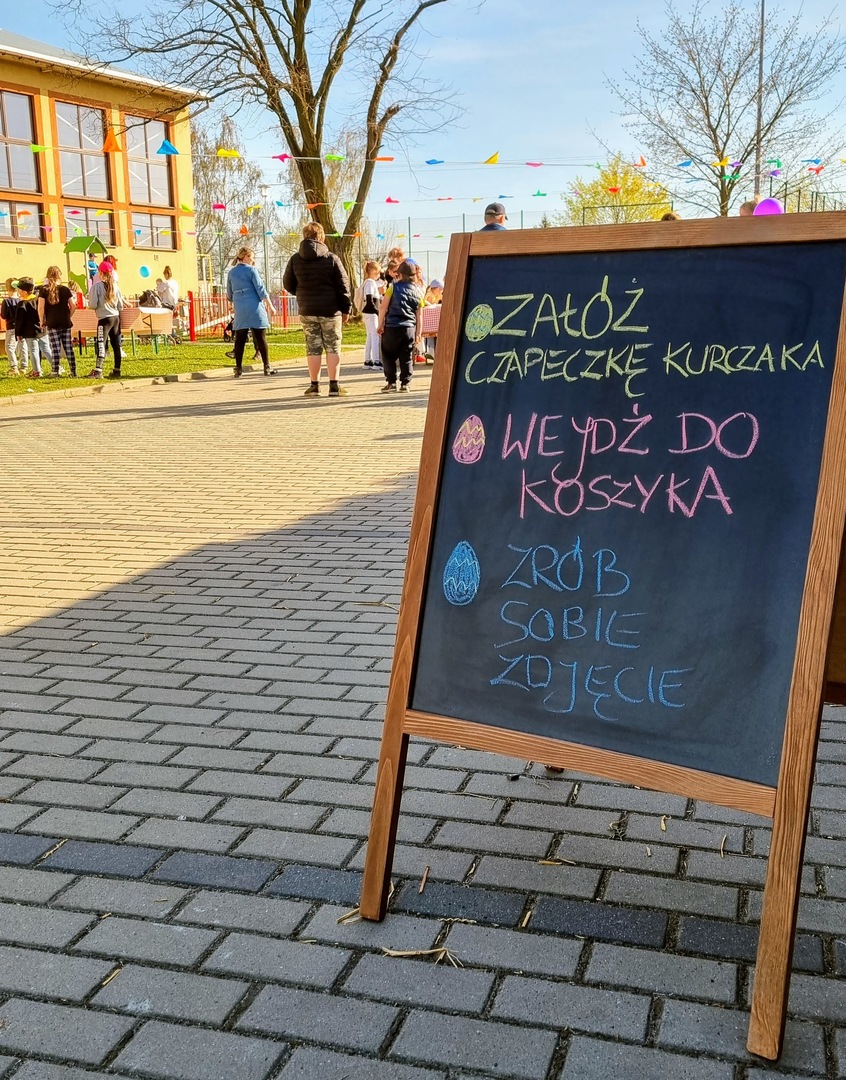 ZAŁÓŻ
CZAPECZKĘ KURCZAKA
WEJDŹ DO
KOSZYKA
ZRÓB
SOBIE
ZDJĘCIE